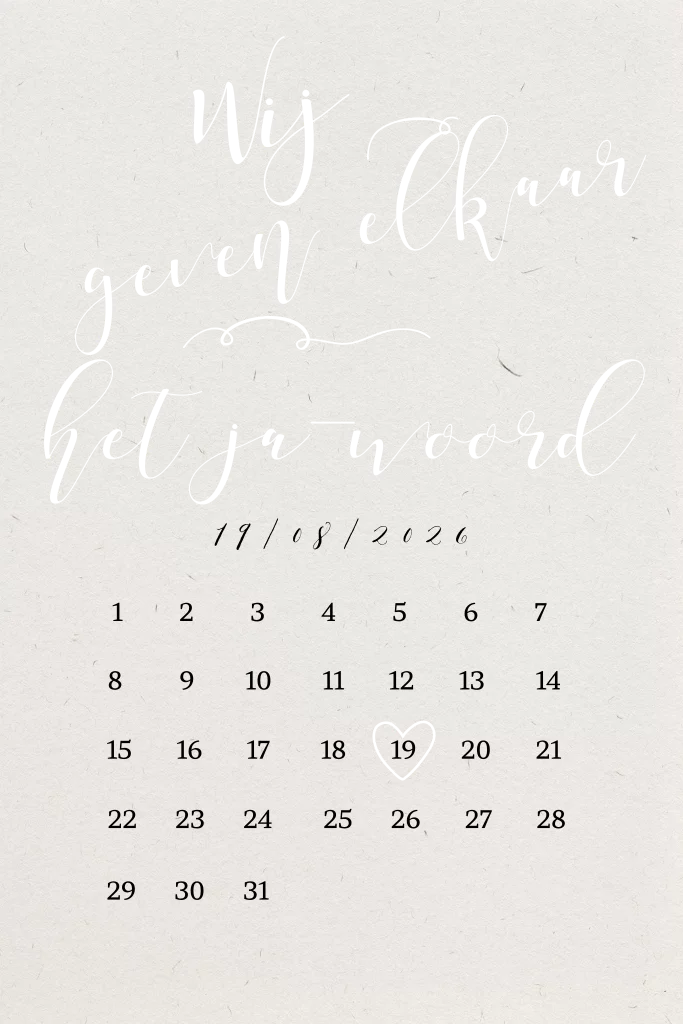 Wij
geven elkaar
het ja-woord
19/08/2026
1 2 3 4 5 6 7
8 9 10 11 12 13 14
15 16 17 18 19 20 21
22 23 24 25 26 27 28
29 30 31